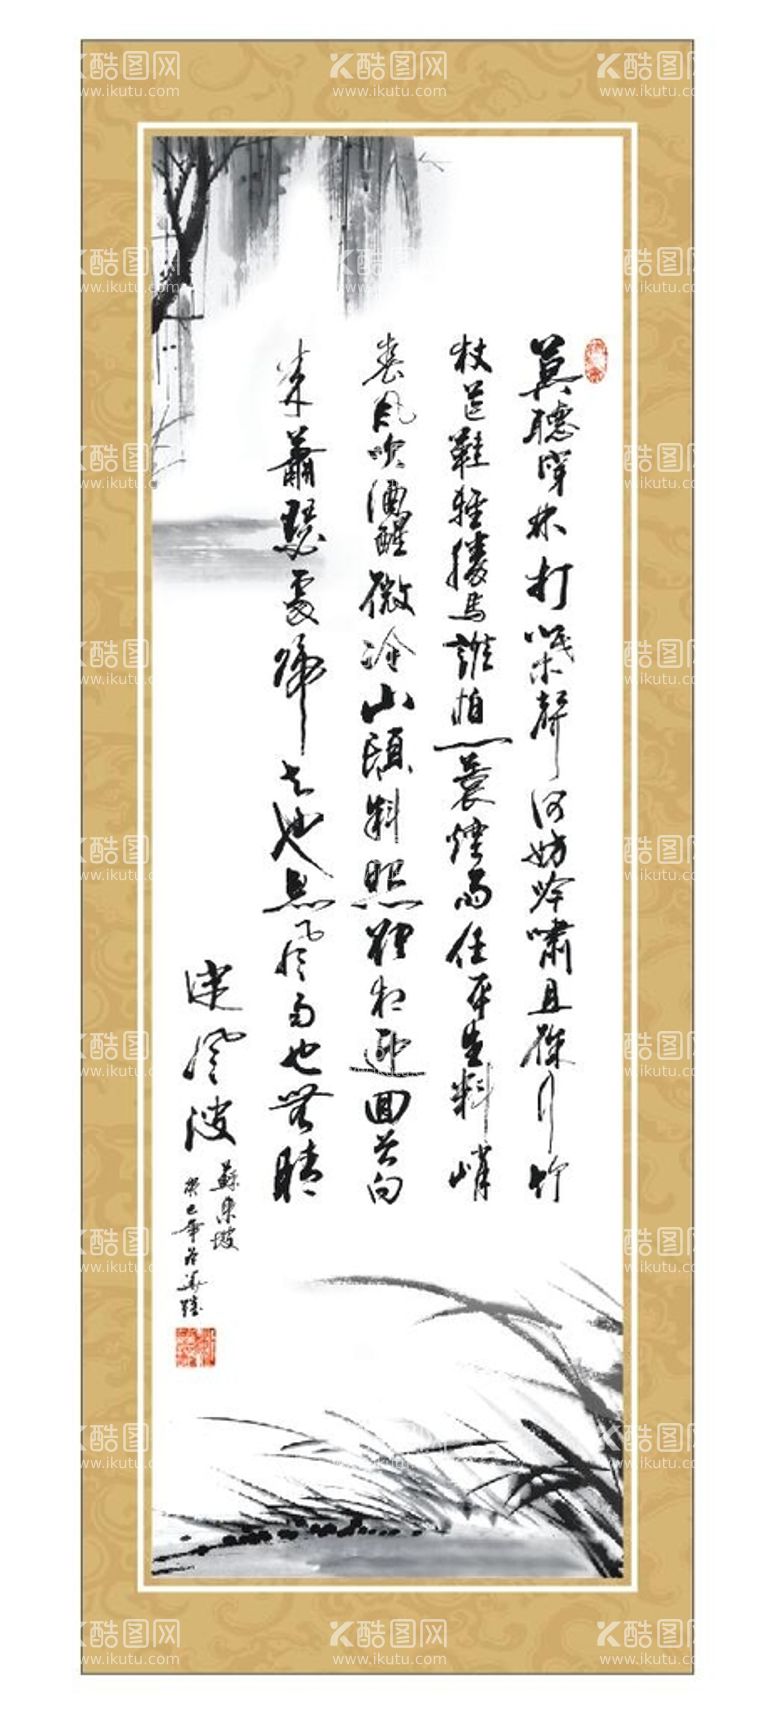 莫聽穿林打葉聲何妨吟嘯且徐行竹
杖芒鞋輕勝馬誰怕一蓑煙雨任平生料峭
春風吹酒醒微冷山頭斜照却相迎回首向
来蕭瑟處歸去也無風雨也無晴
定風波
蘇東坡
癸巳年
酷图网
www.ikutu.com